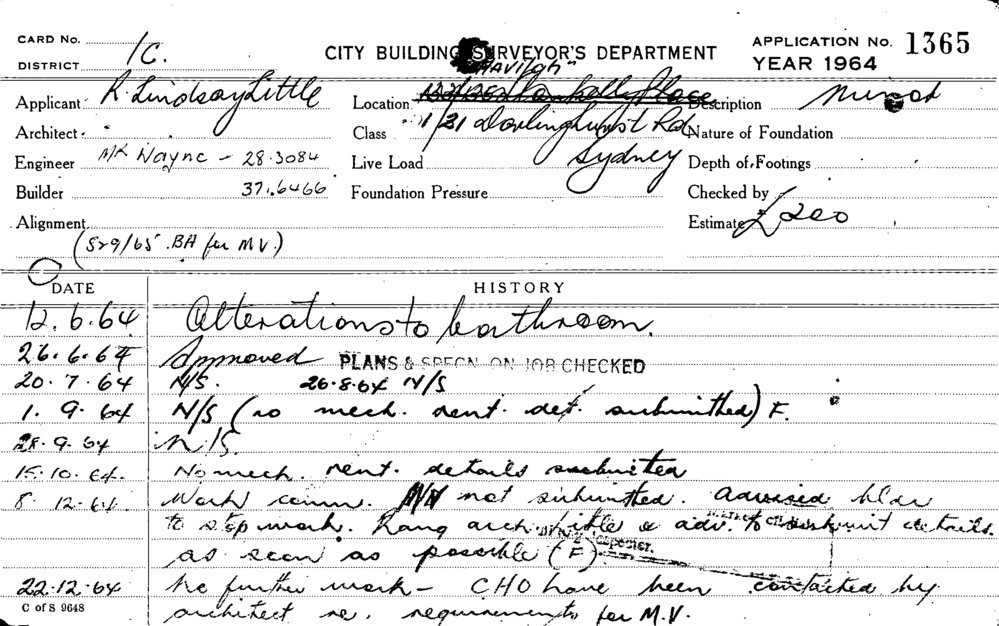 CARD No. 1C. CITY BUILDING SURVEYOR'S DEPARTMENT APPLICATION No. 1365
DISTRICT YEAR 1964
Applicant R Lindsay Little Location Description minor
Architect Class 1/21 Darlinghurst Rd Nature of Foundation
Engineer Mr Wayne - 28.3084 Live Load Sydney Depth of Footings
Builder 37.6466 Foundation Pressure Checked by
Alignment Estimate £200
(829/65 BA for M.V.)
DATE HISTORY
12.6.64 Alterations to bathroom.
26.6.64 Approved PLANS & SPECN ON JOB CHECKED
20.7.64 N/S. 26.8.64 N/S
1.9.64 N/S (no mech. vent. det. submitted) F.
28.9.64 N/S.
15.10.64. No mech. vent. details submitted
8.12.64. Work comm. not submitted. advised bldr
to stop work. Rang arch. Little & adv. to submit details.
as soon as possible (F) Inspector.
22.12.64 No further work - CHO have been contacted by
C of S 9648 architect re. requirements for M.V.